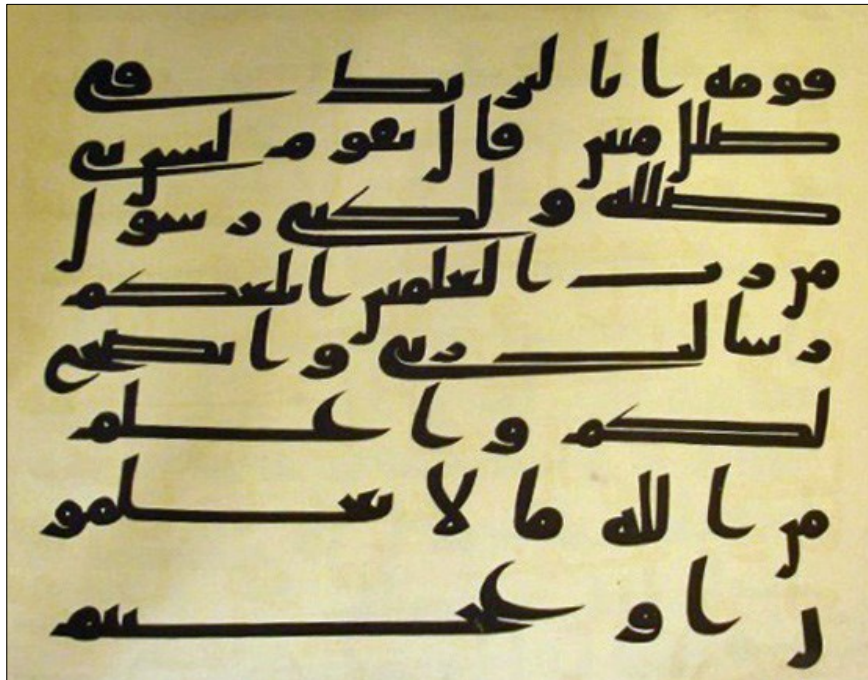 قومه انا لنريك في
ضلل مبين قال يقوم ليس بي
ضللة ولكني رسول
من رب العلمين ابلغكم
رسالت ربي وانصح
لكم واعلم
من الله ما لا تعلمو
ن اوعجبتم